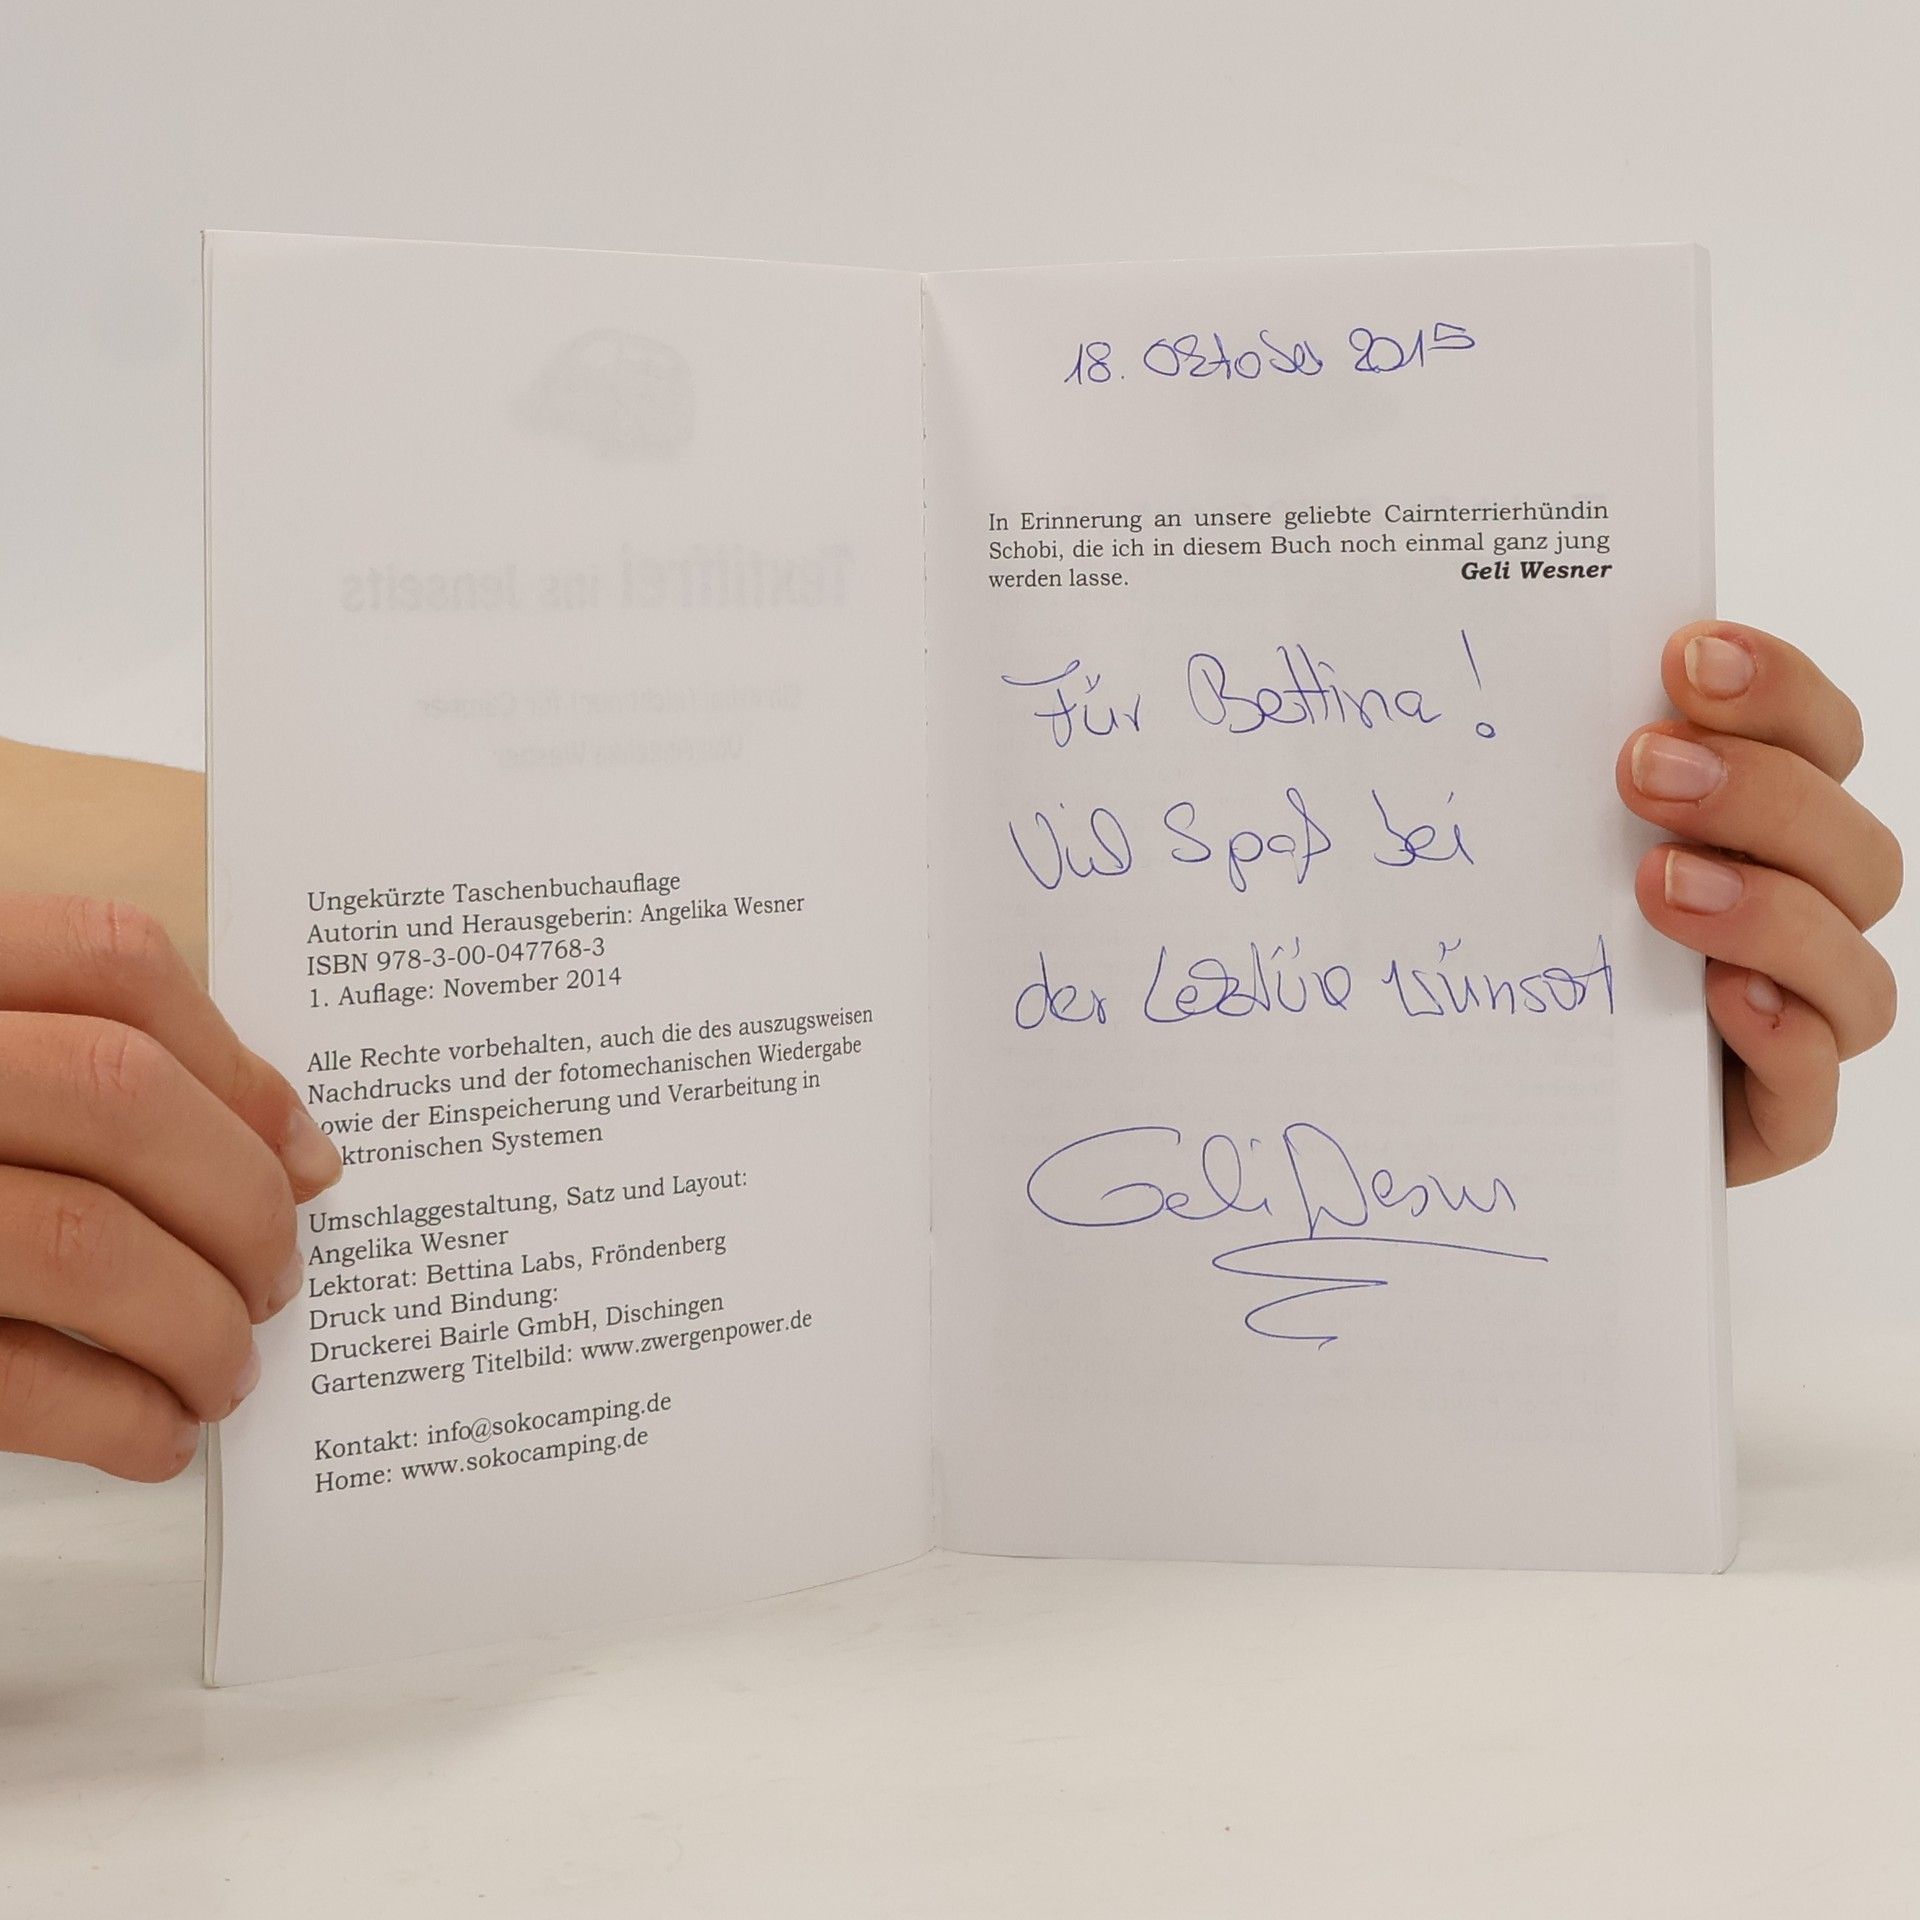 Ungekürzte Taschenbuchauflage
Autorin und Herausgeberin: Angelika Wesner
ISBN 978-3-00-047768-3
1. Auflage: November 2014
Alle Rechte vorbehalten, auch die des auszugsweisen
Nachdrucks und der fotomechanischen Wiedergabe
owie der Einspeicherung und Verarbeitung in
ktronischen Systemen
Umschlaggestaltung, Satz und Layout:
Angelika Wesner
Lektorat: Bettina Labs, Fröndenberg
Druck und Bindung:
Druckerei Bairle GmbH, Dischingen
Gartenzwerg Titelbild: www.zwergenpower.de
Kontakt: info@sokocamping.de
Home: www.sokocamping.de
18. Oktober 2015
In Erinnerung an unsere geliebte Cairnterrierhündin
Schobi, die ich in diesem Buch noch einmal ganz jung
werden lasse. Geli Wesner
Für Bettina!
Viel Spaß bei
der Lektüre wünscht
Geli Wesner